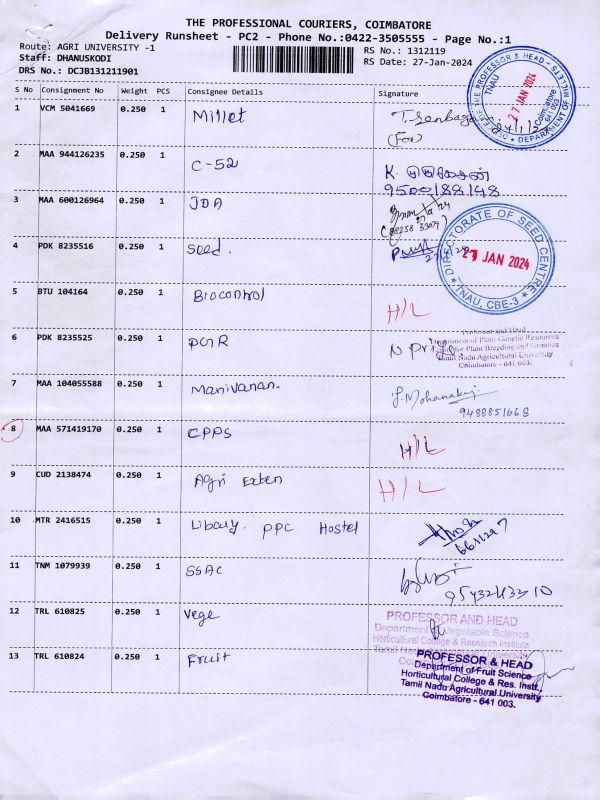 THE PROFESSIONAL COURIERS, COIMBATORE
Delivery Runsheet - PC2 - Phone No.:0422-3505555 - Page No.:1
Route: AGRI UNIVERSITY -1
RS No.: 1312119
Staff: DHANUSKODI
RS Date: 27-Jan-2024
DRS No.: DCJB131211901
S No Consignment No Weight PCS Consignee Details Signature
1 VCM 5041669 0.250 1 Millet
(For)
THE PROFESSOR & HEAD
TNAU
27 JAN 2024
Coimbatore
641 003
DEPARTMENT OF MILLETS
2 MAA 944126235 0.250 1 C-52
9500188148
3 MAA 600126964 0.250 1 JDA
4 PDK 8235516 0.250 1 Seed.
DIRECTORATE OF SEED CENTRE
JAN 2024
TNAU, CBE-3
5 BTU 104164 0.250 1 Biocontrol H/L
6 PDK 8235525 0.250 1 PGR
Professor and Head
Department of Plant Genetic Resources
Plant Breeding and Genetics
Tamil Nadu Agricultural University
Coimbatore - 641 003.
7 MAA 104055588 0.250 1 Manivanan.
9488851668
8 MAA 571419170 0.250 1 CPPS H/L
9 CUD 2138474 0.250 1 Agri Exten H/L
10 MTR 2416515 0.250 1 Libary. PPC Hostel
11 TNM 1079939 0.250 1 SSAC
12 TRL 610825 0.250 1 Vege
PROFESSOR AND HEAD
Department of Vegetable Science
Horticultural College & Research Institute
Tamil Nadu Agricultural University
13 TRL 610824 0.250 1 Fruit
PROFESSOR & HEAD
Department of Fruit Science
Horticultural College & Res. Instt.,
Tamil Nadu Agricultural University
Coimbatore - 641 003.